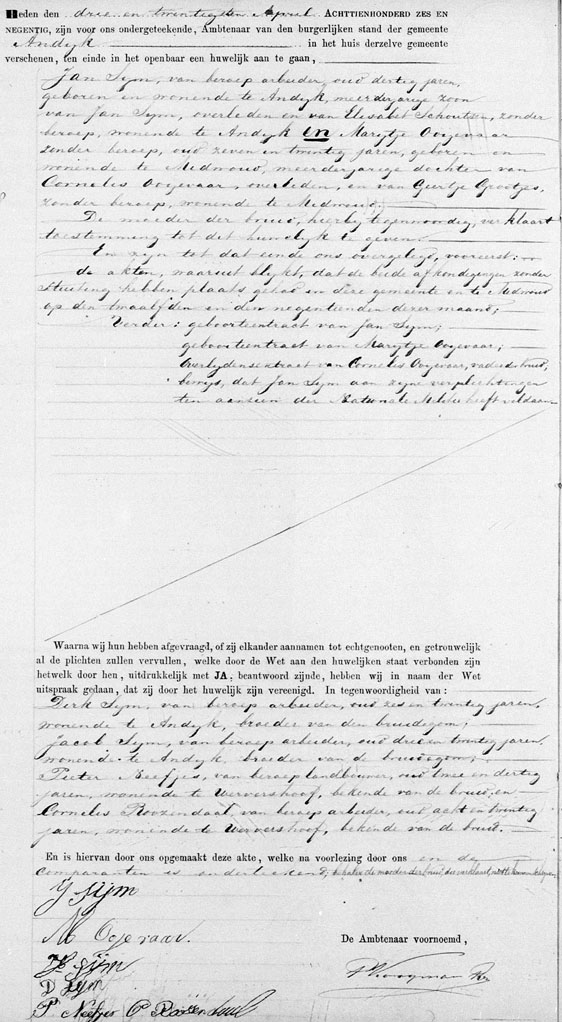 Heden den drie en twintigsten April ACHTTIENHONDERD ZES EN
NEGENTIG, zijn voor ons ondergeteekende, Ambtenaar van den burgerlijken stand der gemeente
Andyk in het huis derzelve gemeente
verschenen, ten einde in het openbaar een huwelijk aan te gaan,
Jan Sijm, van beroep arbeider, oud dertig jaren,
geboren en wonende te Andyk, meerderjarige zoon
van Jan Sijm, overleden en van Elisabet Schouten, zonder
beroep, wonende te Andyk EN Marytje Oogevaar
zonder beroep, oud zeven en twintig jaren, geboren en
wonende te Midwoud, meerderjarige dochter van
Cornelis Oogevaar, overleden, en van Geertje Grootjes,
zonder beroep, wonende te Midwoud;
De moeder der bruid, hierby tegenwoordig, verklaart
toestemming tot dit huwelyk te geven.
En zyn tot dat einde ons overgelegd, vooreerst:
de akten, waaruit blykt, dat de beide afkondigingen zonder
stuiting hebben plaats gehad in deze gemeente en te Midwoud
op den twaalfden en den negentienden dezer maand;
Verder: geboorteextract van Jan Sijm;
geboorteextract van Marytje Oogevaar;
overlydensextract van Cornelis Oogevaar, vader der bruid,
bewys, dat Jan Sijm aan zyne verplichtingen
ten aanzien der Nationale Militie heeft voldaan
Waarna wij hun hebben afgevraagd, of zij elkander aannamen tot echtgenooten, en getrouwelijk
al de plichten zullen vervullen, welke door de Wet aan den huwelijken staat verbonden zijn
hetwelk door hen, uitdrukkelijk met JA, beantwoord zijnde, hebben wij in naam der Wet
uitspraak gedaan, dat zij door het huwelijk zijn vereenigd. In tegenwoordigheid van:
Dirk Sijm, van beroep arbeider, oud zes en twintig jaren,
wonende te Andyk, broeder van den bruidegom;
Jacob Sijm, van beroep arbeider, oud drie en twintig jaren,
wonende te Andyk, broeder van de bruidegom;
Pieter Neefjes, van beroep landbouwer, oud twee en dertig
jaren, wonende te Wervershoof, bekende van de bruid, en
Cornelis Roozendaal, van beroep arbeider, oud acht en twintig
jaren, wonende te Wervershoof, bekende van de bruid.
En is hiervan door ons opgemaakt deze akte, welke na voorlezing door ons en de
comparanten is onderteekend, behalve de moeder der bruid, die verklaard, niet te kunnen schryven
J Sijm
M Ogevaar.
De Ambtenaar voornoemd,
Sijm
D Sijm
P. Neefjes C Roozendaal